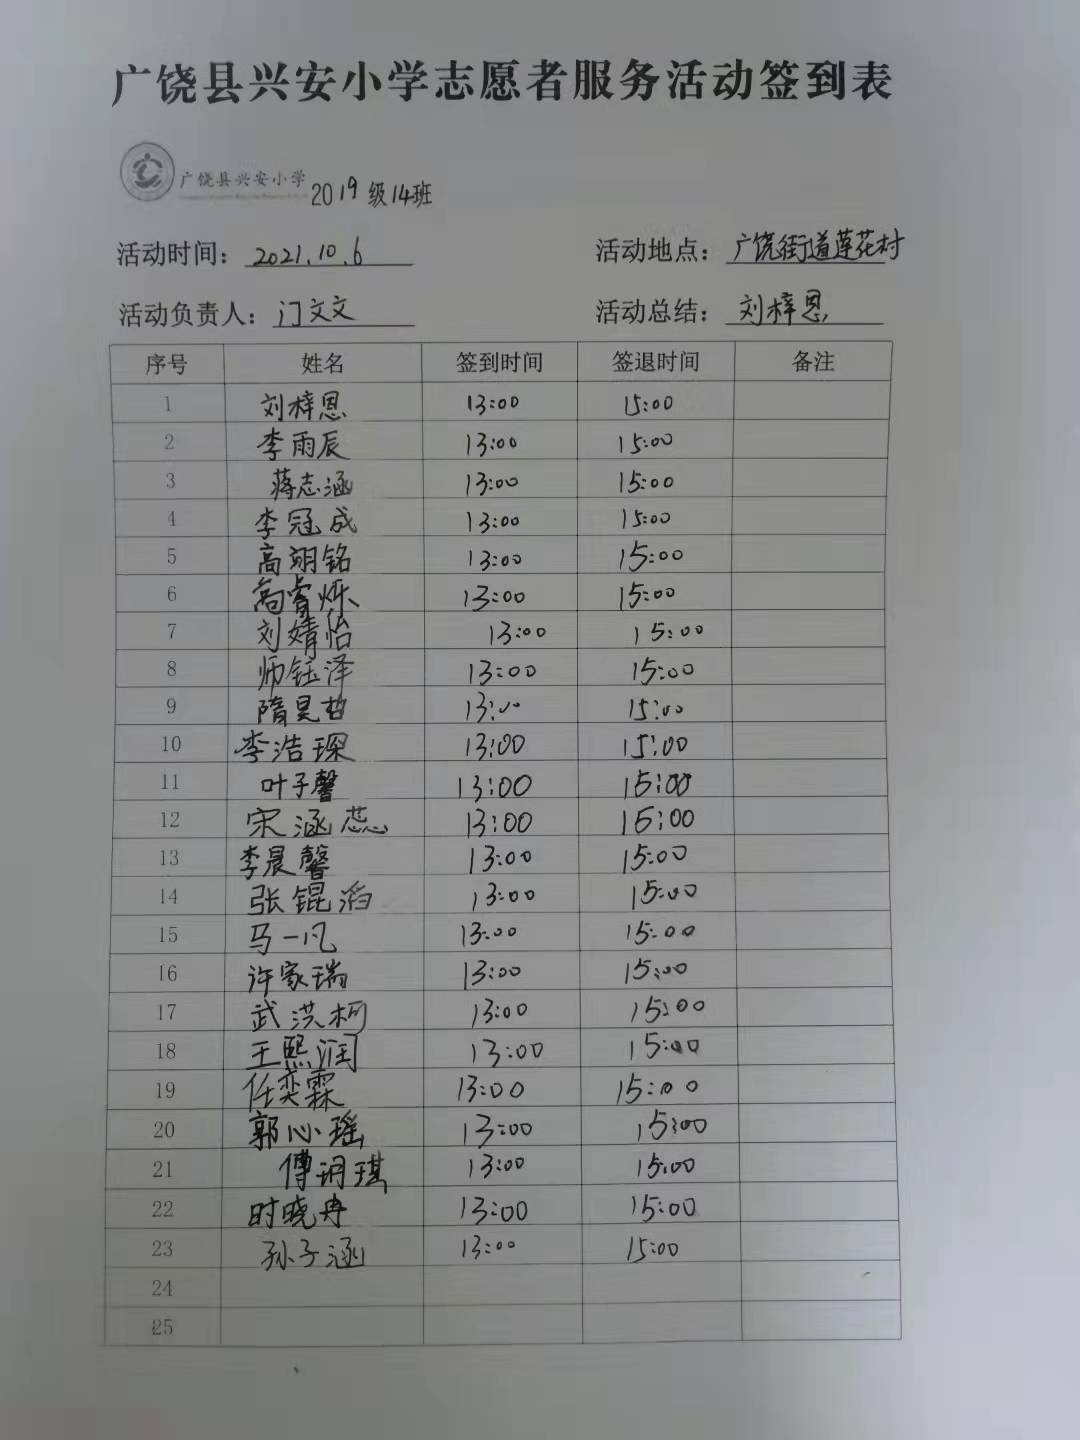 广饶县兴安小学志愿者服务活动签到表
广饶县兴安小学 2019级14班
活动时间：2021.10.6 活动地点：广饶街道莲花村
活动负责人：门文文 活动总结：刘梓恩
序号 姓名 签到时间 签退时间 备注
1 刘梓恩 13:00 15:00
2 李雨辰 13:00 15:00
3 蒋志涵 13:00 15:00
4 李冠成 13:00 15:00
5 高翊铭 13:00 15:00
6 高睿烁 13:00 15:00
7 刘婧怡 13:00 15:00
8 师钰泽 13:00 15:00
9 隋昊哲 13:00 15:00
10 李浩琛 13:00 15:00
11 叶子馨 13:00 15:00
12 宋涵蕊 13:00 15:00
13 李晨馨 13:00 15:00
14 张锟滔 13:00 15:00
15 马一凡 13:00 15:00
16 许家瑞 13:00 15:00
17 武洪柯 13:00 15:00
18 王熙润 13:00 15:00
19 任奕霖 13:00 15:00
20 郭心瑶 13:00 15:00
21 傅玥琪 13:00 15:00
22 时晓冉 13:00 15:00
23 孙子涵 13:00 15:00
24
25